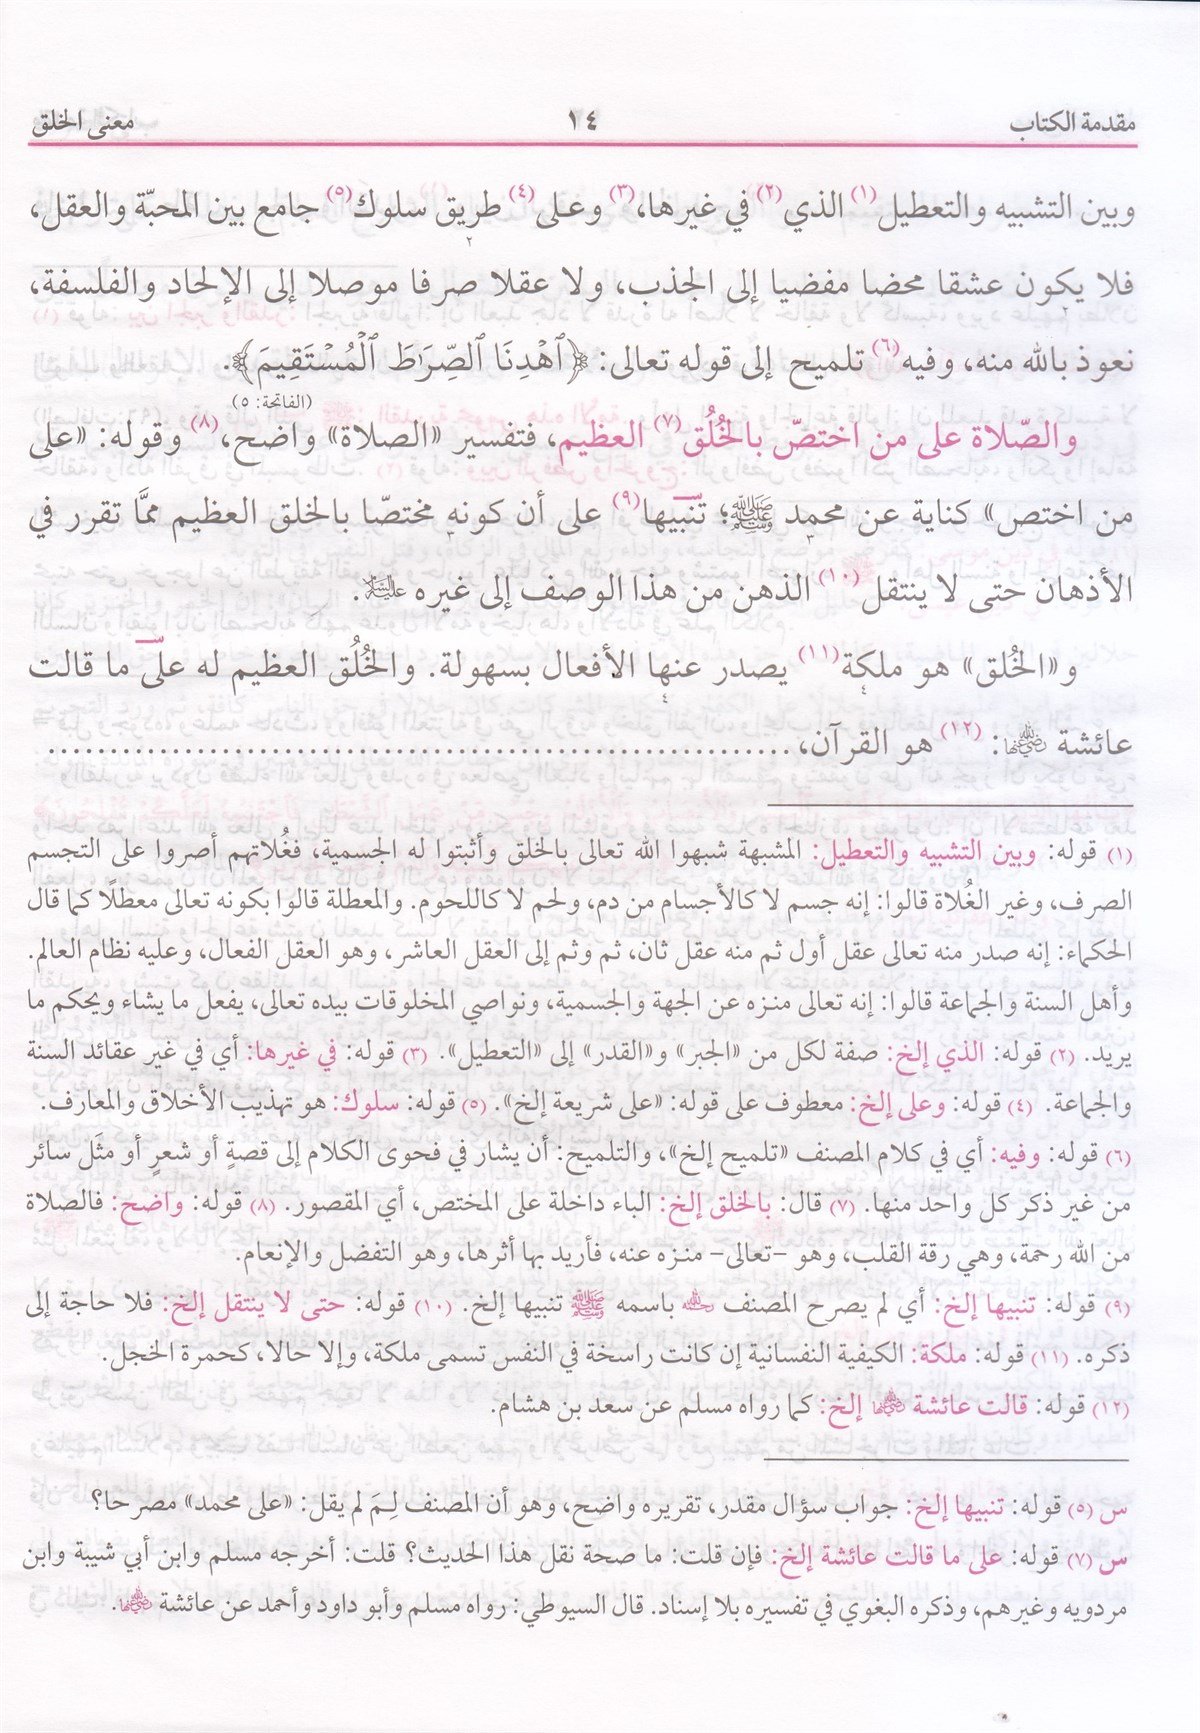 مقدمة الكتاب ١٤ معنى الخلق
وبين التشبيه والتعطيل(١) الذي(٢) في غيرها،(٣) وعلى(٤) طريق سلوك(٥) جامع بين المحبّة والعقل،
فلا يكون عشقا محضا مفضيا إلى الجذب، ولا عقلا صرفا موصلا إلى الإلحاد والفلسفة،
نعوذ بالله منه، وفيه(٦) تلميح إلى قوله تعالى: ﴿ٱهْدِنَا ٱلصِّرَٰطَ ٱلْمُسْتَقِيمَ﴾.
(الفاتحة: ٥)
والصّلاة على من اختصّ بالخُلُق(٧) العظيم، فتفسير «الصلاة» واضح،(٨) وقوله: «على
من اختص» كناية عن محمد ﷺ؛ تنبيها(٩) على أن كونه مختصّا بالخلق العظيم ممَّا تقرر في
الأذهان حتى لا ينتقل(١٠) الذهن من هذا الوصف إلى غيره عليه السلام.
و«الخُلق» هو ملكة(١١) يصدر عنها الأفعال بسهولة. والخُلُق العظيم له على ما قالت
عائشة رضي الله عنها:(١٢) هو القرآن، ........................................................
(١) قوله: وبين التشبيه والتعطيل: المشبهة شبهوا الله تعالى بالخلق وأثبتوا له الجسمية، فغُلاتهم أصروا على التجسم
الصرف، وغير الغُلاة قالوا: إنه جسم لا كالأجسام من دم، ولحم لا كاللحوم. والمعطلة قالوا بكونه تعالى معطلًا كما قال
الحكماء: إنه صدر منه تعالى عقل أول ثم منه عقل ثان، ثم وثم إلى العقل العاشر، وهو العقل الفعال، وعليه نظام العالم.
وأهل السنة والجماعة قالوا: إنه تعالى منزه عن الجهة والجسمية، ونواصي المخلوقات بيده تعالى، يفعل ما يشاء ويحكم ما
يريد. (٢) قوله: الذي إلخ: صفة لكل من «الجبر» و«القدر» إلى «التعطيل». (٣) قوله: في غيرها: أي في غير عقائد السنة
والجماعة. (٤) قوله: وعلى إلخ: معطوف على قوله: «على شريعة إلخ». (٥) قوله: سلوك: هو تهذيب الأخلاق والمعارف.
(٦) قوله: وفيه: أي في كلام المصنف «تلميح إلخ»، والتلميح: أن يشار في فحوى الكلام إلى قصةٍ أو شعرٍ أو مثَل سائر
من غير ذكر كل واحد منها. (٧) قال: بالخلق إلخ: الباء داخلة على المختص، أي المقصور. (٨) قوله: واضح: فالصلاة
من الله رحمة، وهي رقة القلب، وهو –تعالى– منزه عنه، فأريد بها أثرها، وهو التفضل والإنعام.
(٩) قوله: تنبيها إلخ: أي لم يصرح المصنف رحمه الله باسمه ﷺ تنبيها إلخ. (١٠) قوله: حتى لا ينتقل إلخ: فلا حاجة إلى
ذكره. (١١) قوله: ملكة: الكيفية النفسانية إن كانت راسخة في النفس تسمى ملكة، وإلا حالا، كحمرة الخجل.
(١٢) قوله: قالت عائشة رضي الله عنها إلخ: كما رواه مسلم عن سعد بن هشام.
س (٥) قوله: تنبيها إلخ: جواب سؤال مقدر، تقريره واضح، وهو أن المصنف لِـمَ لم يقل: «على محمد» مصرحا؟
س (٧) قوله: على ما قالت عائشة إلخ: فإن قلت: ما صحة نقل هذا الحديث؟ قلت: أخرجه مسلم وابن أبي شيبة وابن
مردويه وغيرهم، وذكره البغوي في تفسيره بلا إسناد. قال السيوطي: رواه مسلم وأبو داود وأحمد عن عائشة رضي الله عنها.